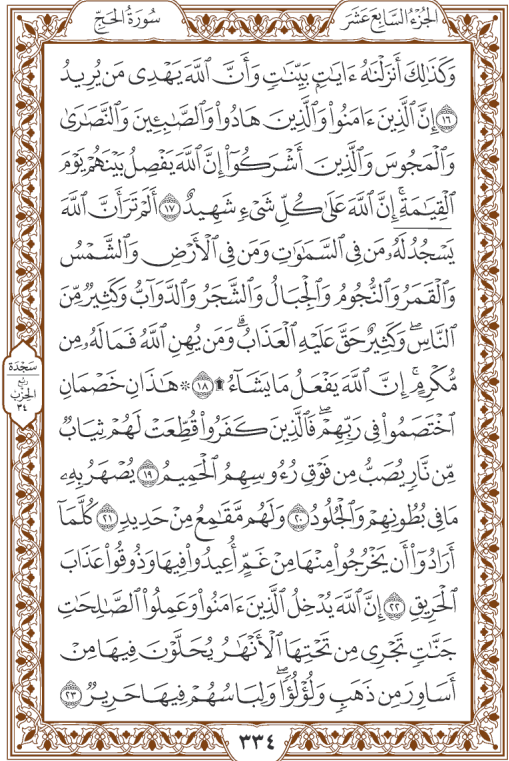 الجُزْءُ السَّابِعَ عَشَرَ
سُورَةُ الحَجِّ
وَكَذَٰلِكَ أَنزَلْنَٰهُ ءَايَٰتٍۭ بَيِّنَٰتٍ وَأَنَّ ٱللَّهَ يَهْدِى مَن يُرِيدُ
١٦ إِنَّ ٱلَّذِينَ ءَامَنُوا۟ وَٱلَّذِينَ هَادُوا۟ وَٱلصَّٰبِـِٔينَ وَٱلنَّصَٰرَىٰ
وَٱلْمَجُوسَ وَٱلَّذِينَ أَشْرَكُوٓا۟ إِنَّ ٱللَّهَ يَفْصِلُ بَيْنَهُمْ يَوْمَ
ٱلْقِيَٰمَةِ ۚ إِنَّ ٱللَّهَ عَلَىٰ كُلِّ شَىْءٍ شَهِيدٌ ١٧ أَلَمْ تَرَ أَنَّ ٱللَّهَ
يَسْجُدُ لَهُۥ مَن فِى ٱلسَّمَٰوَٰتِ وَمَن فِى ٱلْأَرْضِ وَٱلشَّمْسُ
وَٱلْقَمَرُ وَٱلنُّجُومُ وَٱلْجِبَالُ وَٱلشَّجَرُ وَٱلدَّوَآبُّ وَكَثِيرٌ مِّنَ
ٱلنَّاسِ ۖ وَكَثِيرٌ حَقَّ عَلَيْهِ ٱلْعَذَابُ ۗ وَمَن يُهِنِ ٱللَّهُ فَمَا لَهُۥ مِن
مُّكْرِمٍ ۚ إِنَّ ٱللَّهَ يَفْعَلُ مَا يَشَآءُ ۩ ١٨ ۞ هَٰذَانِ خَصْمَانِ
ٱخْتَصَمُوا۟ فِى رَبِّهِمْ ۖ فَٱلَّذِينَ كَفَرُوا۟ قُطِّعَتْ لَهُمْ ثِيَابٌ
مِّن نَّارٍ يُصَبُّ مِن فَوْقِ رُءُوسِهِمُ ٱلْحَمِيمُ ١٩ يُصْهَرُ بِهِۦ
مَا فِى بُطُونِهِمْ وَٱلْجُلُودُ ٢٠ وَلَهُم مَّقَٰمِعُ مِنْ حَدِيدٍ ٢١ كُلَّمَآ
أَرَادُوٓا۟ أَن يَخْرُجُوا۟ مِنْهَا مِنْ غَمٍّ أُعِيدُوا۟ فِيهَا وَذُوقُوا۟ عَذَابَ
ٱلْحَرِيقِ ٢٢ إِنَّ ٱللَّهَ يُدْخِلُ ٱلَّذِينَ ءَامَنُوا۟ وَعَمِلُوا۟ ٱلصَّٰلِحَٰتِ
جَنَّٰتٍ تَجْرِى مِن تَحْتِهَا ٱلْأَنْهَٰرُ يُحَلَّوْنَ فِيهَا مِنْ
أَسَاوِرَ مِن ذَهَبٍ وَلُؤْلُؤًا ۖ وَلِبَاسُهُمْ فِيهَا حَرِيرٌ ٢٣
سَجْدَة
رُبع
الحِزْب
٣٤
٣٣٤